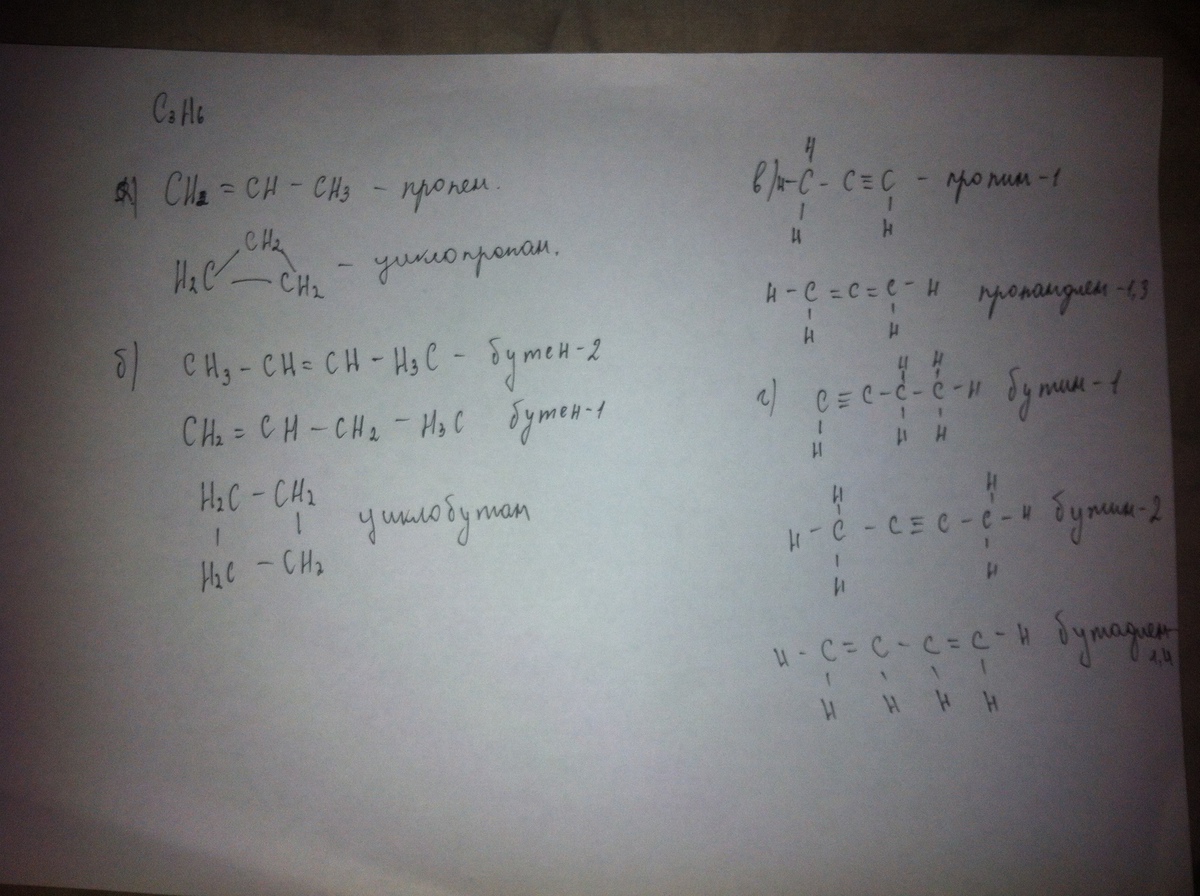 C₃H₆
а) CH₂ = CH – CH₃ – пропен.
CH₂
H₂C — CH₂ – циклопропан.
б) CH₃ – CH = CH – H₃C – бутен-2
CH₂ = CH – CH₂ – H₃C бутен-1
H₂C – CH₂
H₂C – CH₂ циклобутан
H
в) H – C – C ≡ C – пропин-1
H H
H – C = C = C – H пропандиен-1,3
H H
H H
г) C ≡ C – C – C – H бутин-1
H H H
H H
H – C – C ≡ C – C – H бутин-2
H H
H – C = C – C = C – H бутадиен-1,4
H H H H